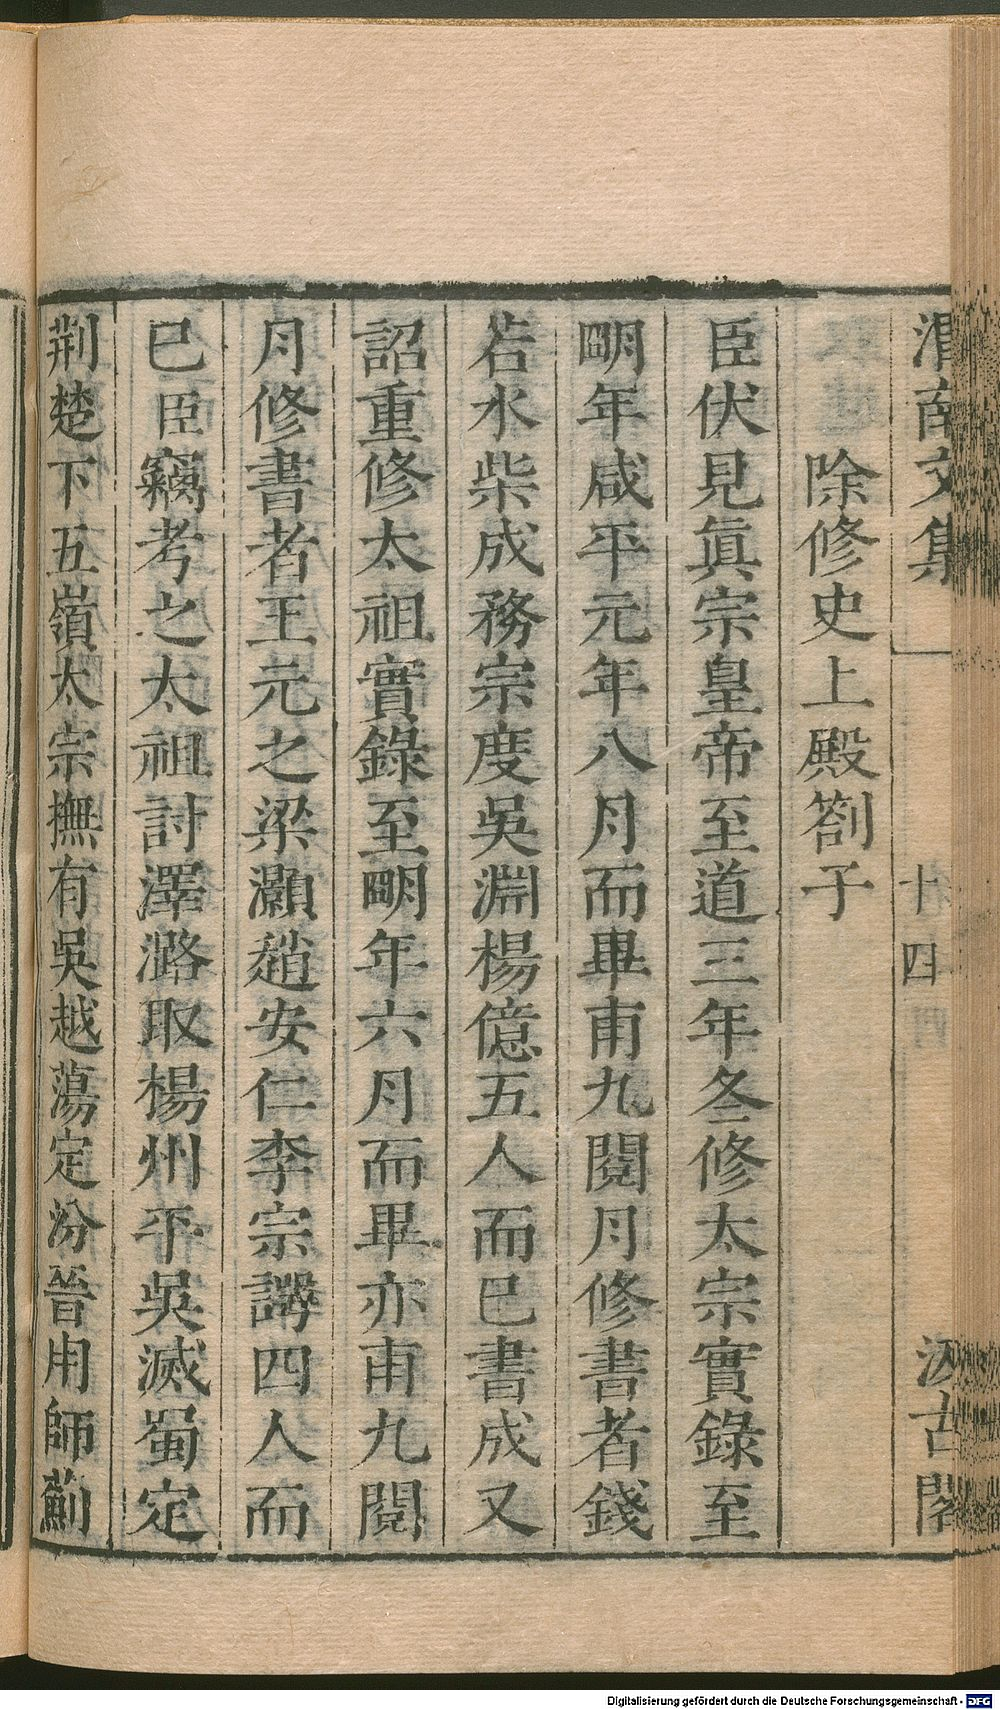 渭南文集
十四
汲古閣
除修史上殿劄子
臣伏見眞宗皇帝至道三年冬修太宗實錄至
朙年咸平元年八月而畢甫九閱月修書者錢
若水柴成務宗度吳淵楊億五人而已書成又
詔重修太祖實錄至朙年六月而畢亦甫九閱
月修書者王元之梁灝趙安仁李宗諤四人而
已臣竊考之太祖討澤潞取楊州平吳滅蜀定
荆楚下五嶺太宗撫有吳越蕩定汾晉用師薊
Digitalisierung gefördert durch die Deutsche Forschungsgemeinschaft - DFG